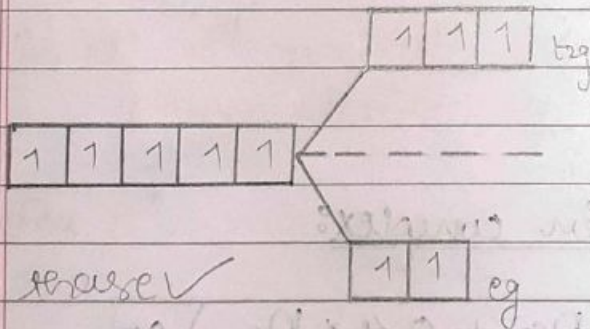 1 1 1 t2g
1 1 1 1 1
1 1 eg